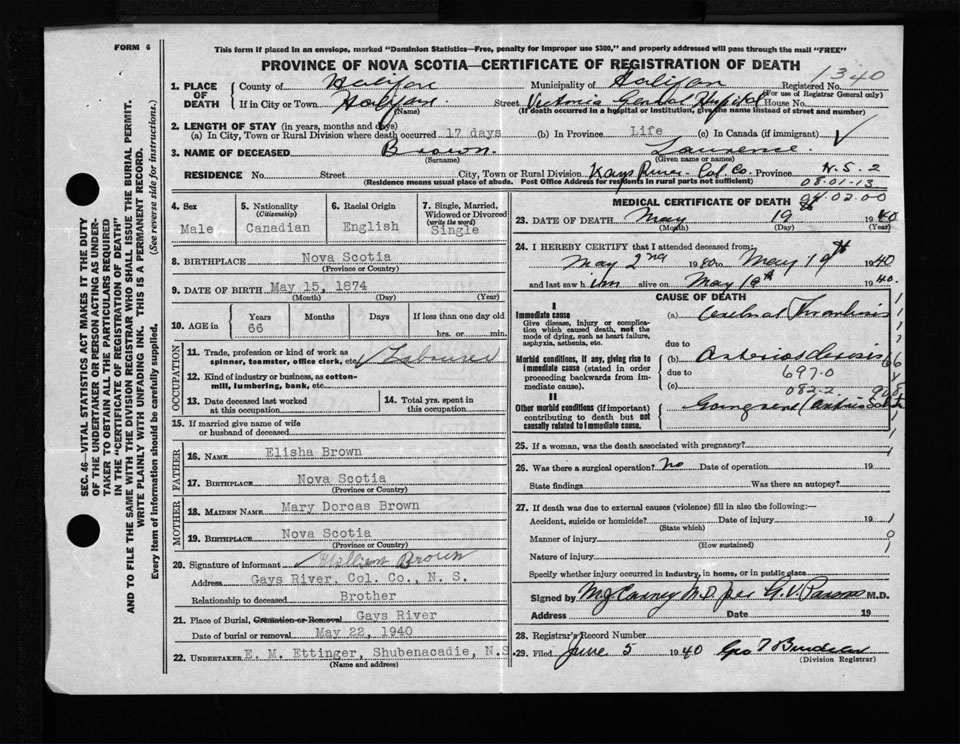 FORM 6
This form if placed in an envelope, marked "Dominion Statistics—Free, penalty for improper use $300," and properly addressed will pass through the mail "FREE"
PROVINCE OF NOVA SCOTIA—CERTIFICATE OF REGISTRATION OF DEATH
1340
SEC. 46—VITAL STATISTICS ACT MAKES IT THE DUTY
OF THE UNDERTAKER OR PERSON ACTING AS UNDER-
TAKER TO OBTAIN ALL THE PARTICULARS REQUIRED
IN THE "CERTIFICATE OF REGISTRATION OF DEATH"
AND TO FILE THE SAME WITH THE DIVISION REGISTRAR WHO SHALL ISSUE THE BURIAL PERMIT.
WRITE PLAINLY WITH UNFADING INK. THIS IS A PERMANENT RECORD.
Every item of information should be carefully supplied. (See reverse side for instructions.)
1. PLACE OF DEATH County of Halifax Municipality of Halifax Registered No.
(For use of Registrar General only)
If in City or Town Halifax Street Victoria General Hospital House No.
(Name) (If death occurred in a hospital or institution, give the name instead of street and number)
2. LENGTH OF STAY (in years, months and days)
(a) In City, Town or Rural Division where death occurred 17 days (b) In Province Life (c) In Canada (if immigrant)
3. NAME OF DECEASED Brown Lawrence
(Surname) (Given name or names)
RESIDENCE No. Street City, Town or Rural Division Gays River - Col. Co. Province N.S. 2
(Residence means usual place of abode. Post Office Address for residents in rural parts not sufficient)
08-01-13
02-00
4. Sex Male
5. Nationality (Citizenship) Canadian
6. Racial Origin English
7. Single, Married, Widowed or Divorced (write the word) Single
8. BIRTHPLACE Nova Scotia
(Province or Country)
9. DATE OF BIRTH May 15, 1874
(Month) (Day) (Year)
10. AGE in Years 66 Months Days If less than one day old
hrs. or min.
OCCUPATION
11. Trade, profession or kind of work as spinner, teamster, office clerk, etc. Labourer
12. Kind of industry or business, as cotton-mill, lumbering, bank, etc.
13. Date deceased last worked at this occupation
14. Total yrs. spent in this occupation
15. If married give name of wife or husband of deceased
FATHER
16. NAME Elisha Brown
17. BIRTHPLACE Nova Scotia
(Province or Country)
MOTHER
18. MAIDEN NAME Mary Dorcas Brown
19. BIRTHPLACE Nova Scotia
(Province or Country)
20. Signature of informant William Brown
Address Gays River, Col. Co., N. S.
Relationship to deceased Brother
21. Place of Burial, Cremation or Removal Gays River
Date of burial or removal May 22, 1940
22. UNDERTAKER E. M. Ettinger, Shubenacadie, N.S.
(Name and address)
MEDICAL CERTIFICATE OF DEATH
23. DATE OF DEATH May 19 1940
(Month) (Day) (Year)
24. I HEREBY CERTIFY that I attended deceased from:
May 2nd 1940 to May 19th 1940
and last saw him alive on May 19th 1940.
CAUSE OF DEATH
I
Immediate cause (a) Cerebral Thrombosis
Give disease, injury or complication which caused death, not the mode of dying, such as heart failure, asphyxia, asthenia, etc.
due to
Morbid conditions, if any, giving rise to immediate cause (stated in order proceeding backwards from immediate cause).
(b) Arteriosclerosis
due to 697.0
(c) 082.2
II
Other morbid conditions (if important) contributing to death but not causally related to immediate cause.
Gangrene
25. If a woman, was the death associated with pregnancy?
26. Was there a surgical operation? no Date of operation 19
State findings Was there an autopsy?
27. If death was due to external causes (violence) fill in also the following:—
Accident, suicide or homicide? Date of injury 19
(State which)
Manner of injury
(How sustained)
Nature of injury
Specify whether injury occurred in industry, in home, or in public place
Signed by per G.V. Parsons M.D.
Address Date 19
28. Registrar's Record Number
29. Filed June 5 1940 Geo T
(Division Registrar)